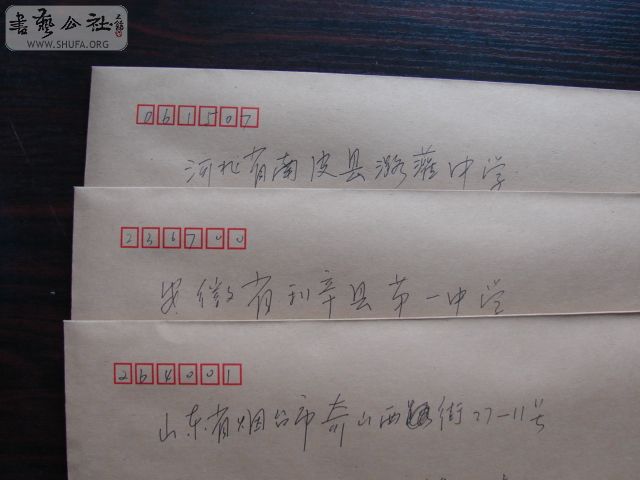 書藝公社
WWW.SHUFA.ORG
061507
河北省南皮县潞灌中学
236700
安徽省利辛县第一中学
264001
山东省烟台市奇山西街27-11号